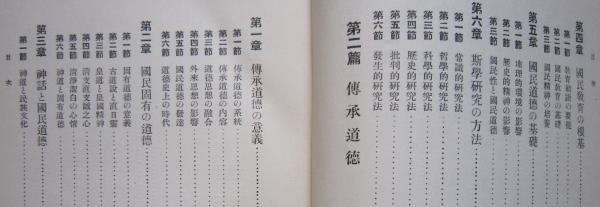 目次
第四章 國民教育の根基
第一節 教育勅語の奉體
第二節 國民教育の基礎
第三節 國民精神の培養
第五章 國民道德の基礎
第一節 地理的環境の影響
第二節 歷史的精神の影響
第三節 國民性と國民道德
第六章 斯學研究の方法
第一節 常識的研究法
第二節 哲學的研究法
第三節 科學的研究法
第四節 歷史的研究法
第五節 批判的研究法
第六節 發生的研究法
第二篇 傳承道德
第一章 傳承道德の意義
第一節 傳承道德の系統
第二節 傳承道德の內容
第三節 道德思想の融合
第四節 外來思想の影響
第五節 國民道德の發達
第六節 道德史上の時代
第二章 國民固有の道德
第一節 固有道德の意義
第二節 古道說と直日靈
第三節 皇道と皇國精神
第四節 淸支直支誠之心
第五節 淸淨潔白の心情
第六節 神道と固有道德
第三章 神話と國民道德
第一節 神道と民族文化
目次